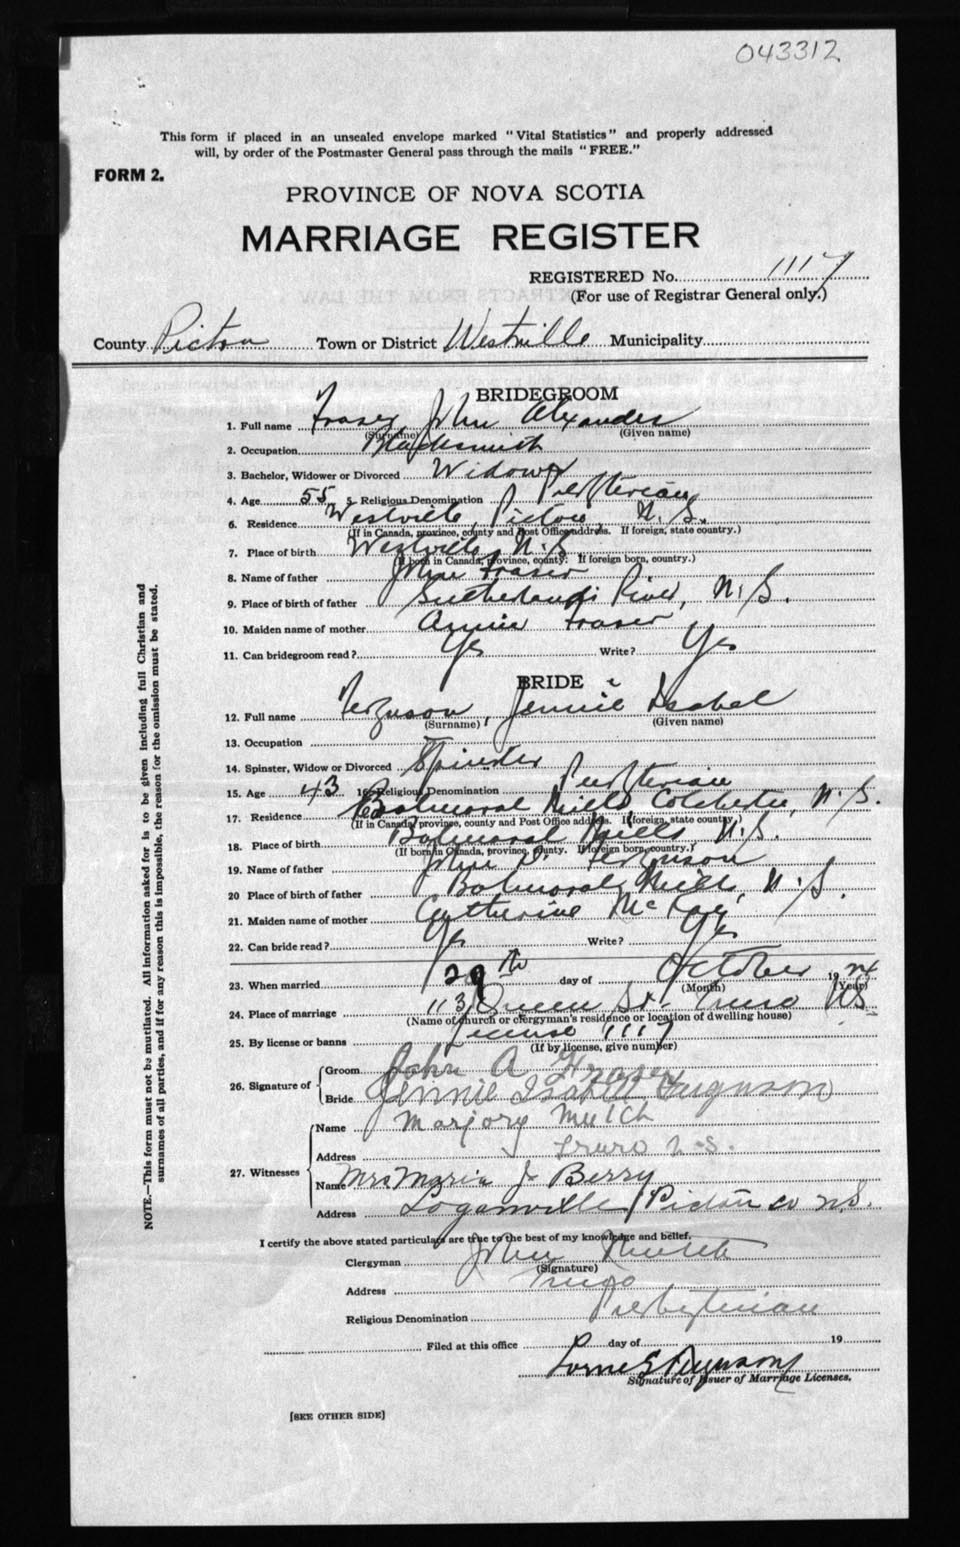 043312
This form if placed in an unsealed envelope marked "Vital Statistics" and properly addressed
will, by order of the Postmaster General pass through the mails "FREE."
FORM 2.
PROVINCE OF NOVA SCOTIA
MARRIAGE REGISTER
REGISTERED No. 1117
(For use of Registrar General only.)
County Pictou Town or District Westville Municipality
BRIDEGROOM
1. Full name Fraser John Alexander
(Surname) (Given name)
2. Occupation Blacksmith
3. Bachelor, Widower or Divorced Widower
4. Age 55 5. Religious Denomination Presbyterian
6. Residence Westville, Pictou, N.S.
(If in Canada, province, county and Post Office address. If foreign, state country.)
7. Place of birth Westville N.S.
(If born in Canada, province, county. If foreign born, country.)
8. Name of father John Fraser
9. Place of birth of father Sutherlands River, N.S.
10. Maiden name of mother Annie Fraser
11. Can bridegroom read? Yes Write? Yes
BRIDE
12. Full name Ferguson, Jennie Isabel
(Surname) (Given name)
13. Occupation
14. Spinster, Widow or Divorced Spinster
15. Age 43 16. Religious Denomination Presbyterian
17. Residence Balmoral Mills, Colchester, N.S.
(If in Canada, province, county and Post Office address. If foreign, state country.)
18. Place of birth Balmoral Mills N.S.
(If born in Canada, province, county. If foreign born, country.)
19. Name of father John D. Ferguson
20 Place of birth of father Balmoral Mills, N.S.
21. Maiden name of mother Catherine McKay
22. Can bride read? Yes Write? Yes
23. When married 29th day of October 1924
(Month) (Year)
24. Place of marriage 113 Queen St. Truro NS
(Name of church or clergyman's residence or location of dwelling house)
25. By license or banns License 1117
(If by license, give number)
26. Signature of Groom John A Fraser
Bride Jennie Isabell Ferguson
27. Witnesses Name Marjory Mutch
Address Truro N.S.
Name Mrs Maria J Berry
Address Loganville Pictou co N.S.
I certify the above stated particulars are true to the best of my knowledge and belief.
Clergyman John Mutch
(Signature)
Address Truro
Religious Denomination Presbyterian
Filed at this office day of 19
Lorne S Ferguson
Signature of Issuer of Marriage Licenses.
[SEE OTHER SIDE]
NOTE.—This form must not be mutilated. All information asked for is to be given including full Christian and
surnames of all parties, and if for any reason this is impossible, the reason for the omission must be stated.